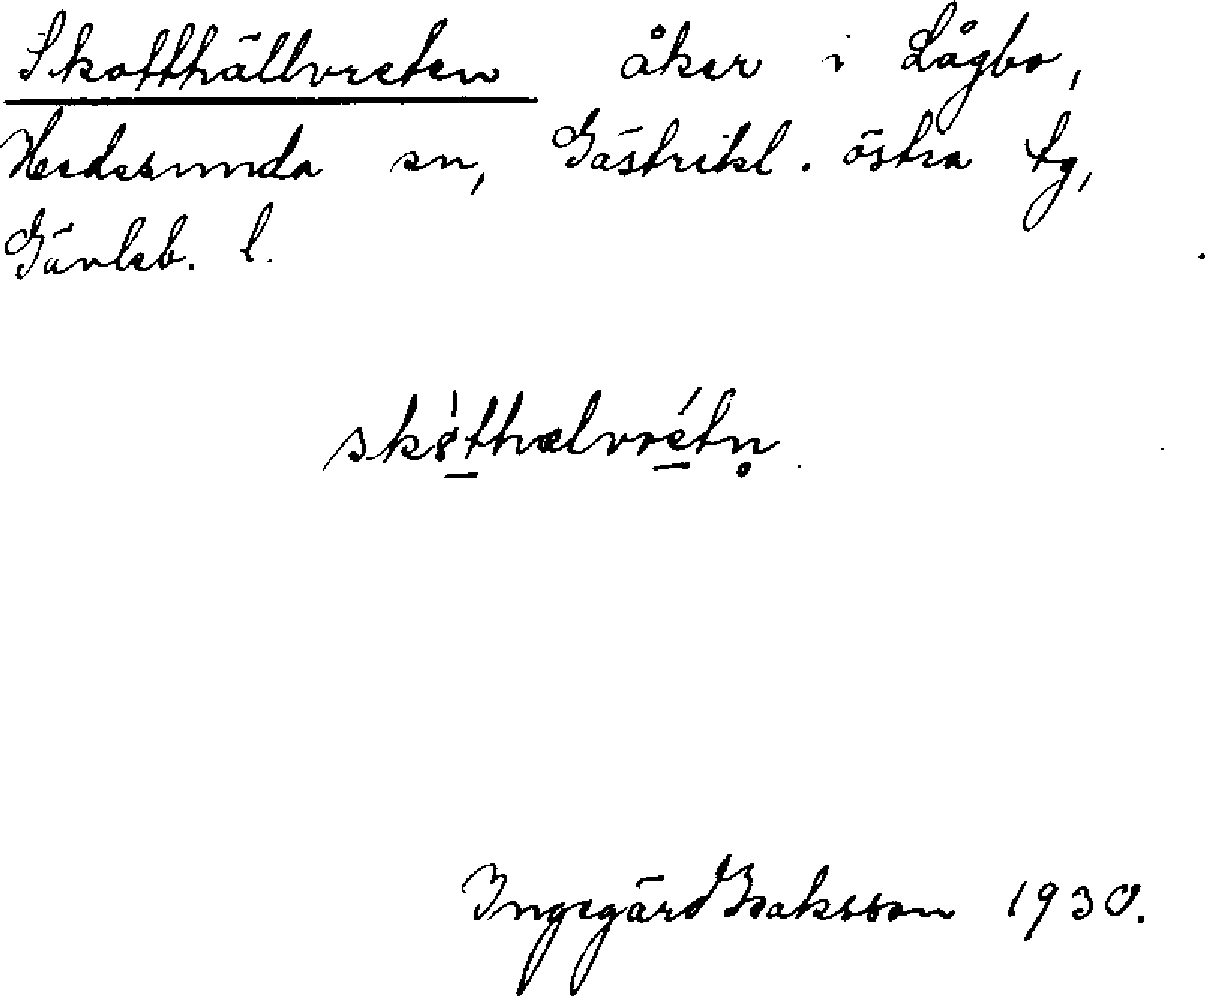 Skotthällvreten åker i Lågbo,
Hedesunda sn, Gästrikl. östra tg,
Gävleb. l.
skòthælvrétn̥
Ingegärd Isaksson 1930.